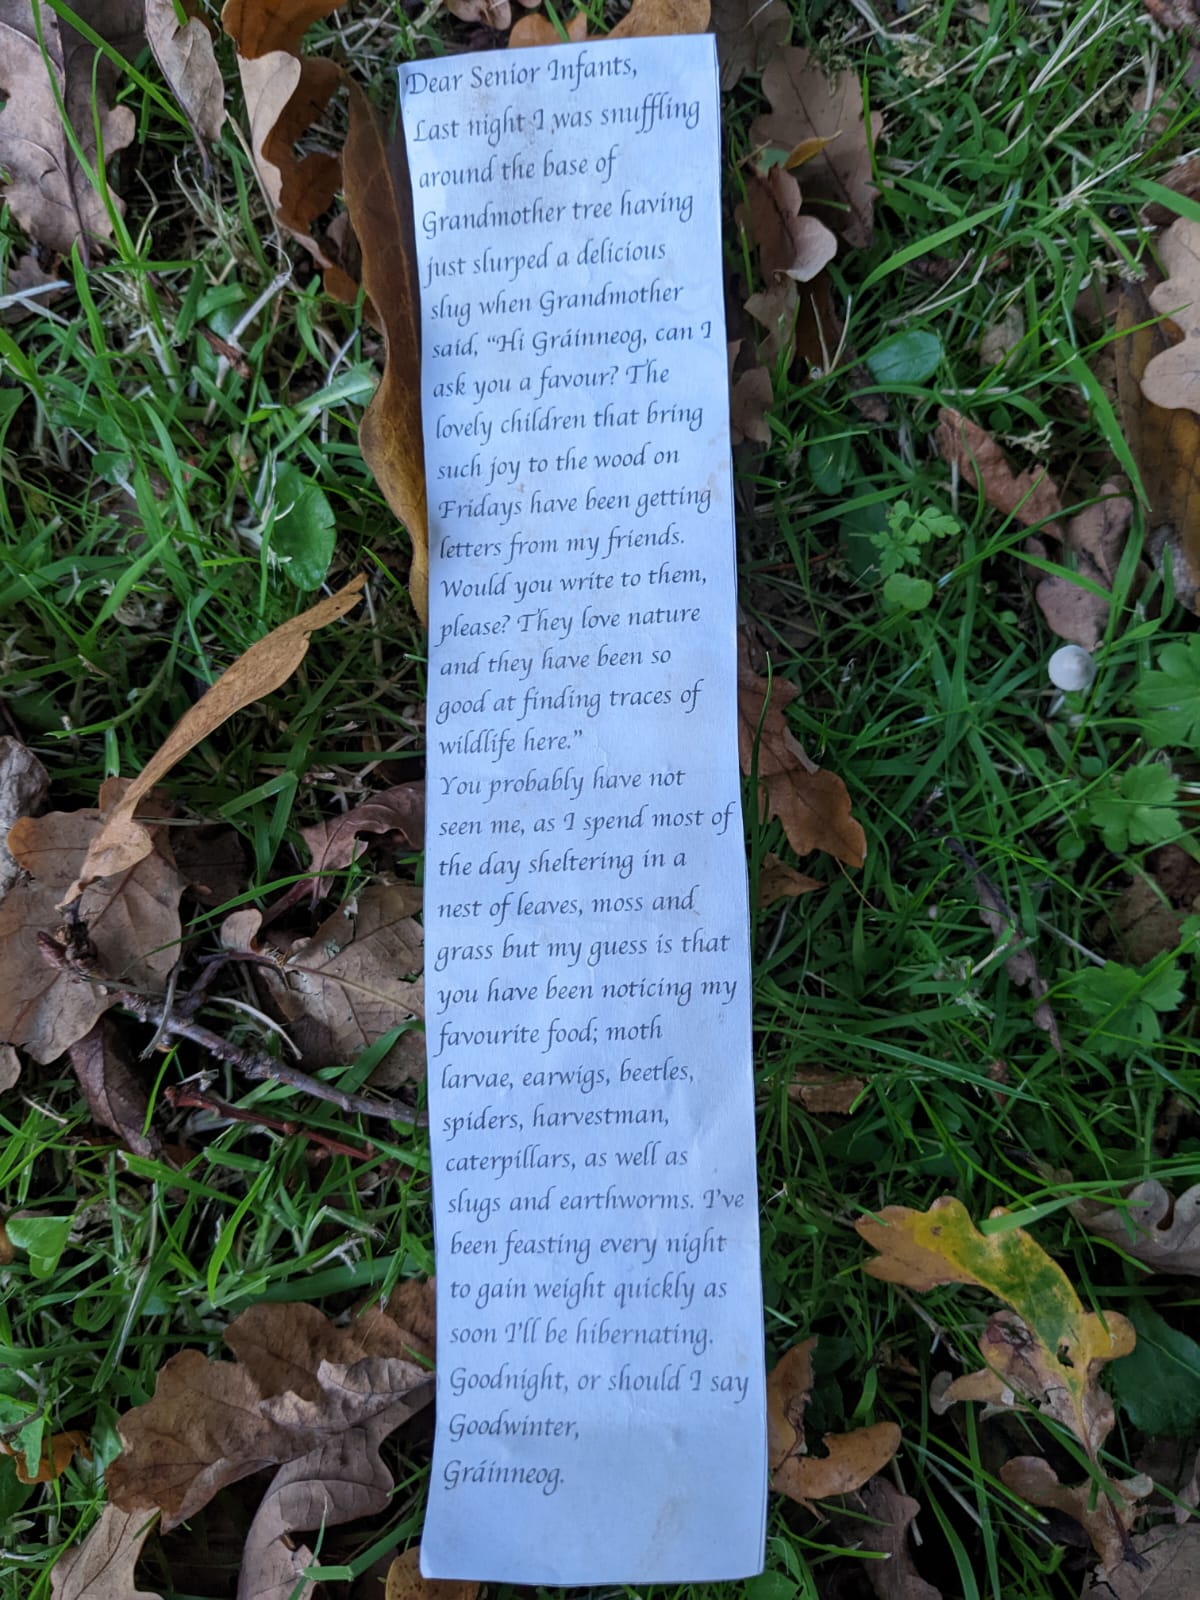 Dear Senior Infants,
Last night I was snuffling
around the base of
Grandmother tree having
just slurped a delicious
slug when Grandmother
said, “Hi Gráinneog, can I
ask you a favour? The
lovely children that bring
such joy to the wood on
Fridays have been getting
letters from my friends.
Would you write to them,
please? They love nature
and they have been so
good at finding traces of
wildlife here.”
You probably have not
seen me, as I spend most of
the day sheltering in a
nest of leaves, moss and
grass but my guess is that
you have been noticing my
favourite food; moth
larvae, earwigs, beetles,
spiders, harvestman,
caterpillars, as well as
slugs and earthworms. I've
been feasting every night
to gain weight quickly as
soon I'll be hibernating.
Goodnight, or should I say
Goodwinter,
Gráinneog.